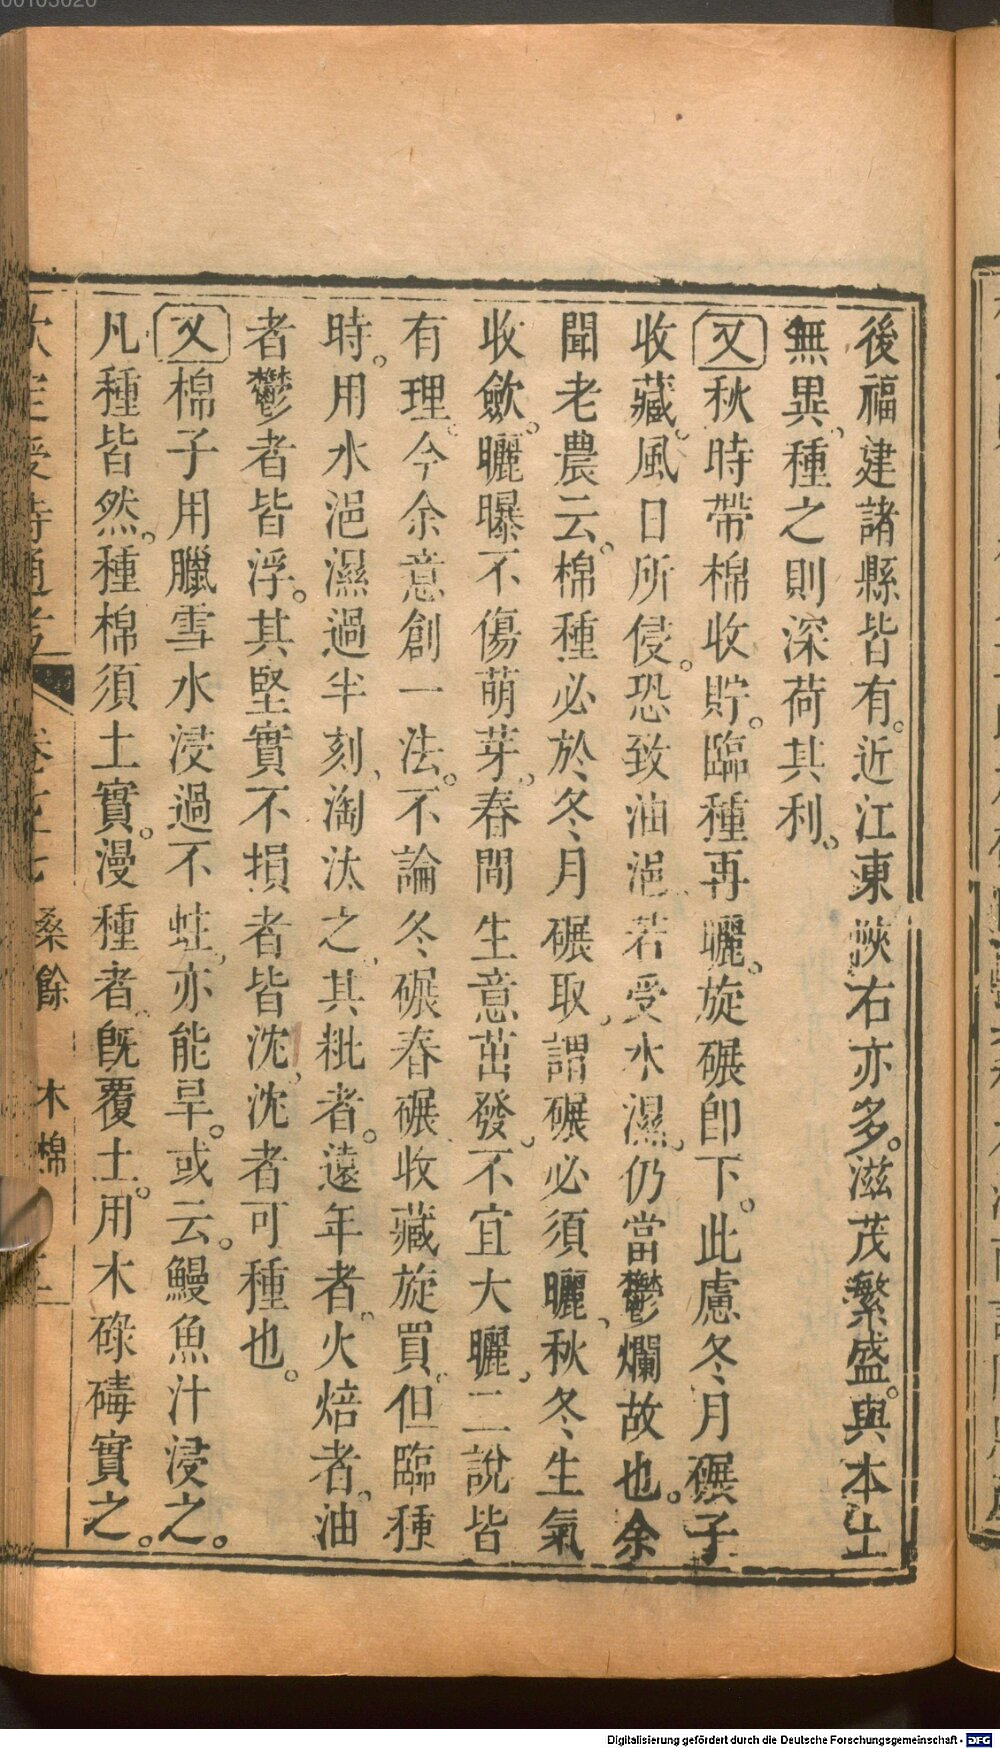 後福建諸縣皆有。近江東陝右亦多。滋茂繁盛。與本土
無異。種之則深荷其利。
又秋時帶棉收貯。臨種再曬。旋碾卽下。此慮冬月碾子
收藏。風日所侵。恐致油浥。若受水濕。仍當鬱爛故也。余
聞老農云。棉種必於冬月碾取。謂碾必須曬。秋冬生氣
收斂。曬曝不傷萌芽。春間生意茁發。不宜大曬。二說皆
有理。今余意創一法。不論冬碾春碾收藏旋買。但臨種
時。用水浥濕過半刻。淘汰之。其粃者。遠年者。火焙者。油
者鬱者皆浮。其堅實不損者皆沈。沈者可種也。
又棉子用臘雪水浸過不蛀。亦能旱。或云。鰻魚汁浸之。
凡種皆然。種棉須土實。漫種者。旣覆土。用木碌碡實之。
欽定授時通考 卷七十七 桑餘 木棉
Digitalisierung gefördert durch die Deutsche Forschungsgemeinschaft - DFG